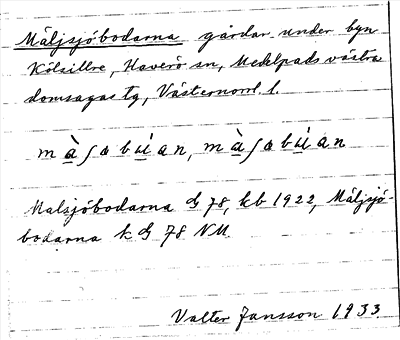 Måljsjöbodarna gårdar under byn
Kölsillre, Haverö sn, Medelpads västra
domsagas tg, Västernorrl. l.
màʃabúan, màʃabúan
Malsjöbodarna G 78, kb 1922, Måljsjö-
bodarna k G 78 NM.
Valter Jansson 1933.